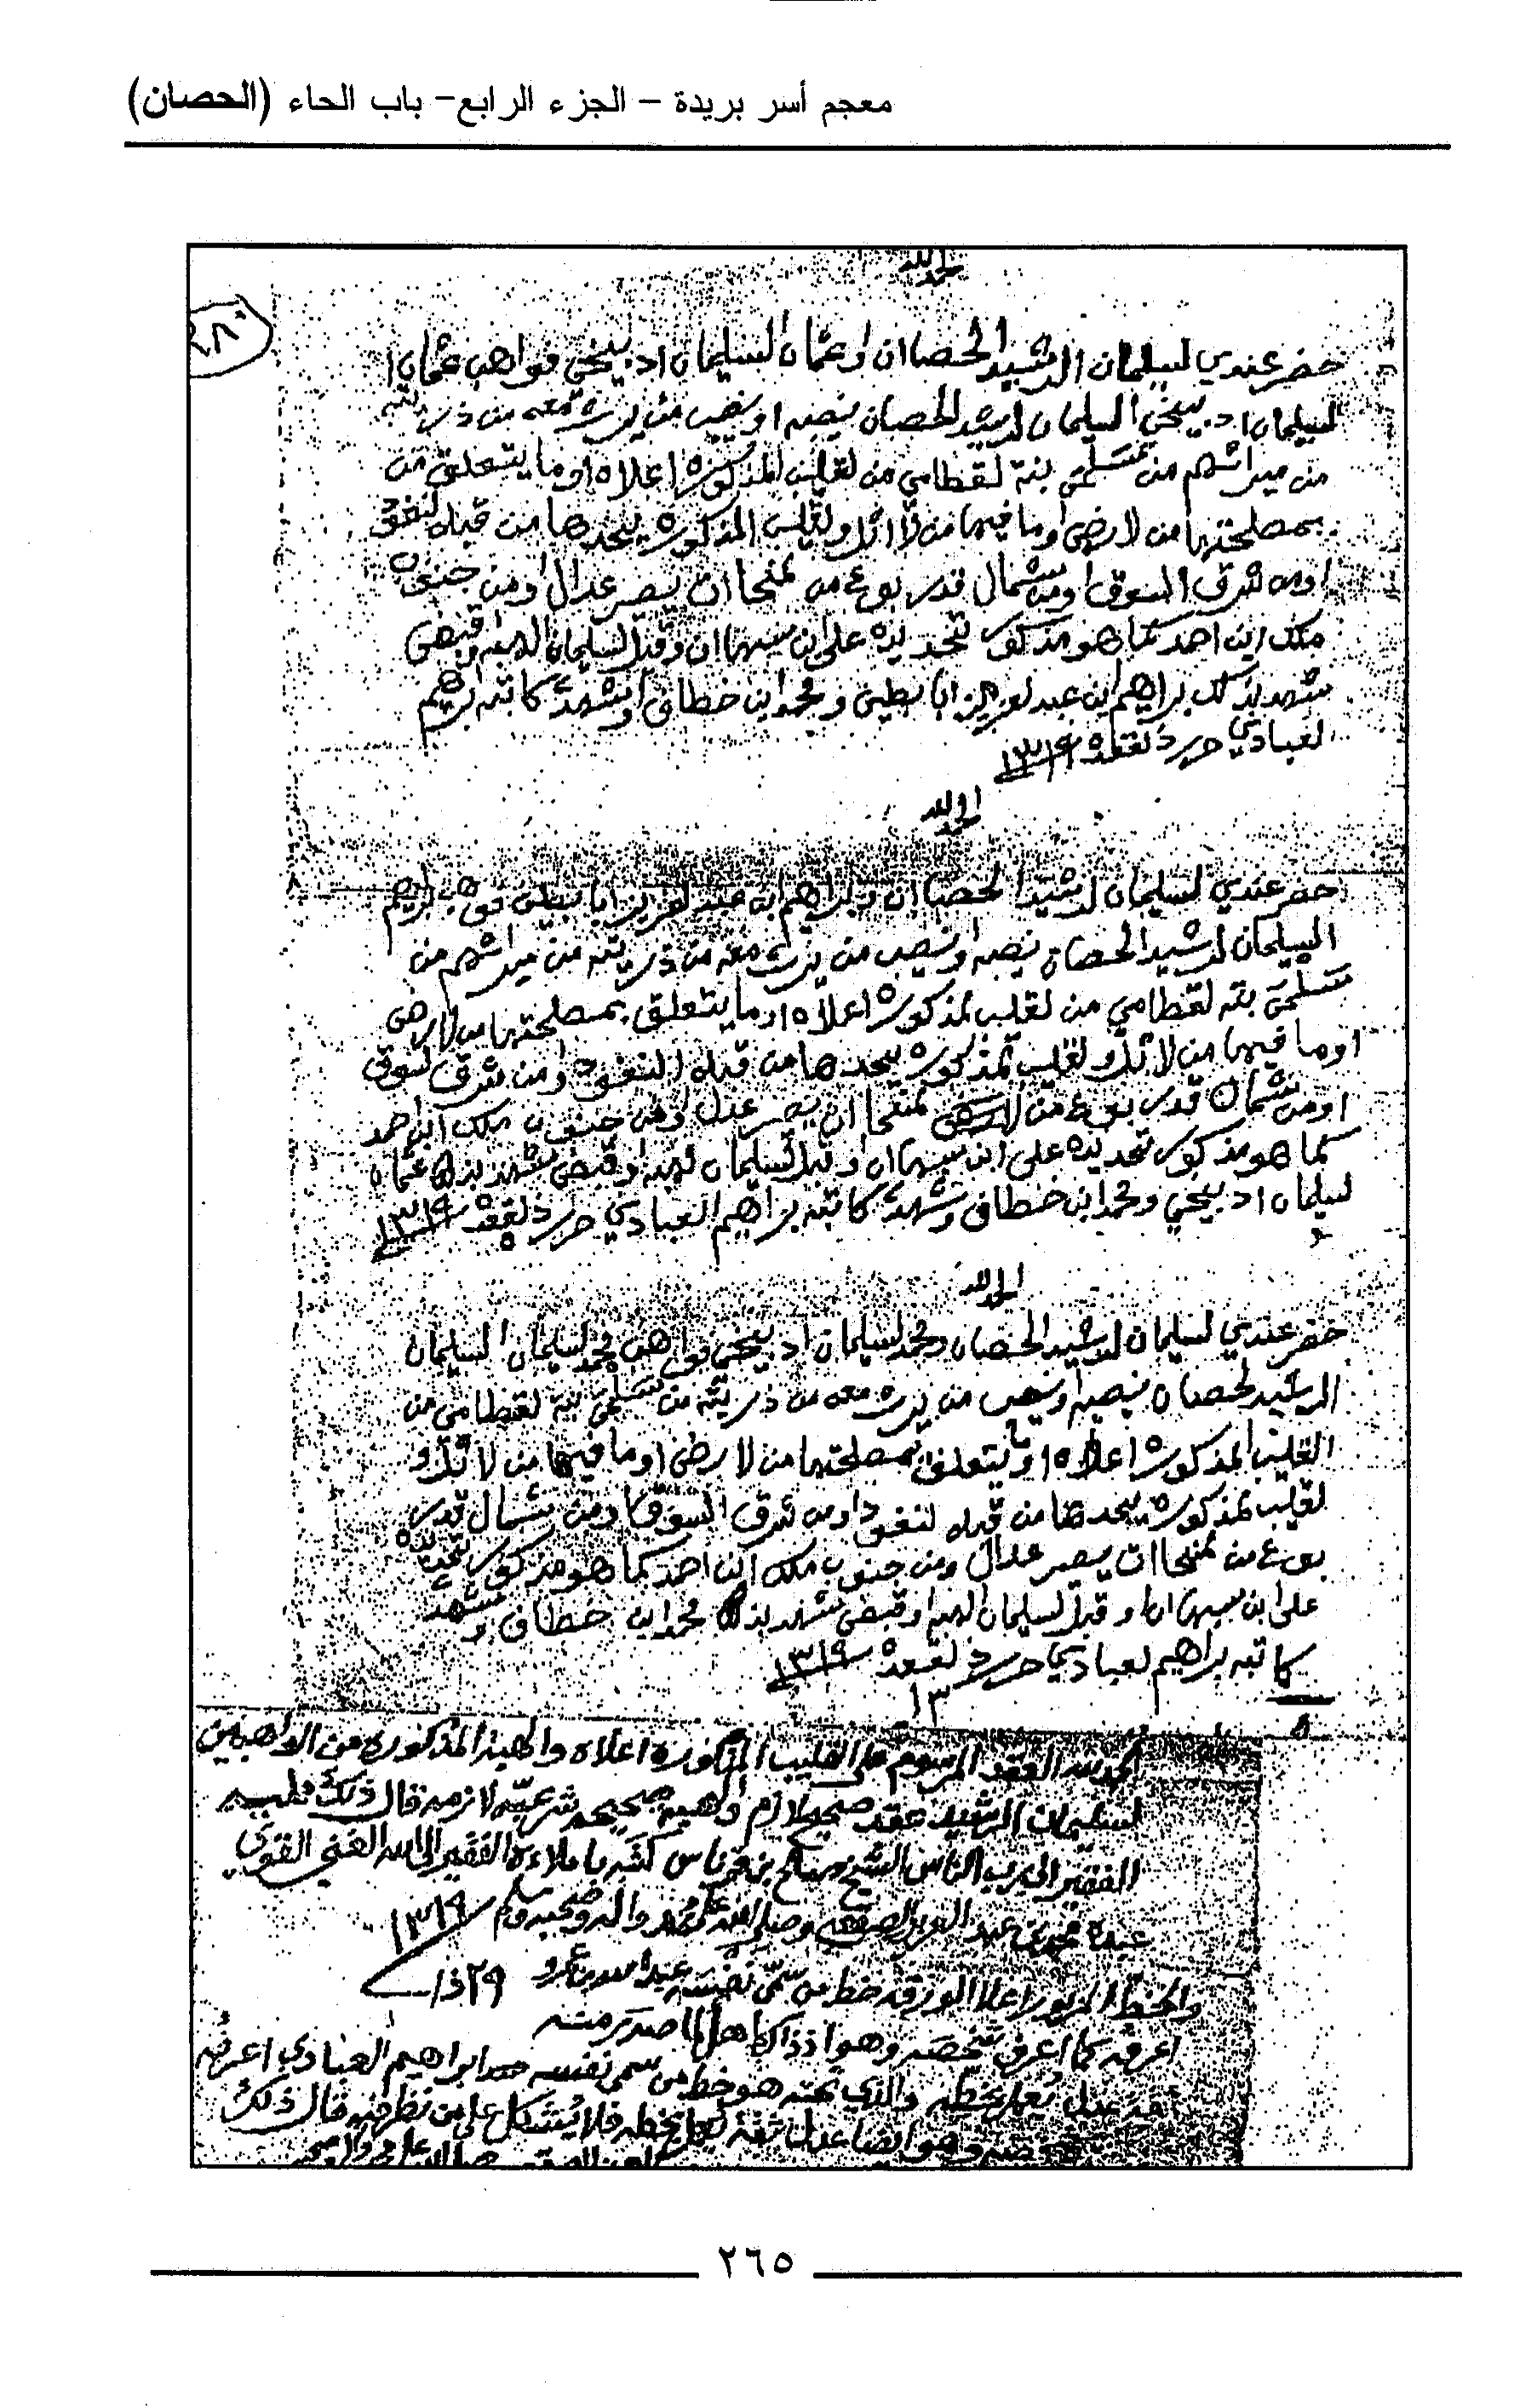 معجم أسر بريدة – الجزء الرابع – باب الحاء (الحصان)
الحمد لله
حضر عندي لسليمان الرشيد الحصاان او عثمان السليمان ادبيخي فواهب عثمان ا
لسليمان ادبيخي السليمان لرشيد الحصان نصيبه او نصيب من يرث معه من ذريته
من ميراثهم من سلمى بنة لقطامي من لقليب المذكوره اعلاه او ما يتعلق من
بمصلحتها من لارض او ما فيها من لااثل ولقليب المذكوره يحدها من قبله لنفود
اومن شرق السوق اومن شمال قدر بوع من لمنحاات يصر عدال اومن جنوب
ملك ابن احمد كما هو مذكور تحديده على ابن سبهاان وقبل لسليمان الهبه اوقبض
شهد بذلك براهيم ابن عبد لعزيز ابا بطين ومحمد ابن خطاف اوشهد كاتبه ابرهيم
لعبادي حرر ذلقعده ١٣١٩
الحمد لله
حضر عندي لسليمان لرشيد الحصاان وبراهيم ابن عبد لعزيز ابا بطين فوهب ابرهيم
السليمان لرشيد الحصان نصيبه او نصيب من يرث معه من ذريته من ميراثهم من
سلمى بنته لقطامي من لقليب لمذكوره اعلاه او ما يتعلق بمصلحتها من لارض
او ما فيها من لاثل ولقليب لمذكوره يحدها من قبله النفود اومن شرق لسوق
اومن شمال قدر بوع من لمنحاان يصر عدل اومن جنوب ملك ابن احمد
كما هو مذكور تحديده على ابن سبهاان او قبل لسليمان لهبه اوقبض شهد بذلك عثمان
لسليمان ادبيخي ومحمد ابن خطاف وشهد كاتبه براهيم العبادي حرر ذلقعده ١٣١٩
الحمد لله
حضر عندي لسليمان لرشيد الحصان ومحمد لسليمان ادبيخي فواهب محمد لسليمان السليمان
الرشيد لحصان نصيبه او نصيب من يرث معه من ذريته من سلمى بنة لقطامي من
القليب المذكوره اعلاه او ما يتعلق بمصلحتها من لارض او ما فيها من لاثل و
لقليب لمذكوره يحدها من قبله لنفود اومن شرق السوق اومن شمال قدر
بوع من لمنحاات يصر عدال ومن جنوب ملك ابن احمد كما هو مذكور تحديده
على ابن سبهاان او قبل لسليمان الهبه اوقبض شهد بذلك محمد ابن خطاف وشهد
كاتبه براهيم لعبادي حرر ذلقعده ١٣١٩
١٣
الحمد لله العقد المرسوم على القليب المذكوره اعلاه والهبة المذكوره من الواهبين
لسليمان الرشيد عقد صحيح لازم والهبة صحيحه شرعيه لازمه قال ذلك
الفقير الى رب الناس الشيخ صالح بن قرناس كتبه باملاءه الفقير الى الله الغني القوي
عبده محمد بن عبد العزيز الصقعبي وصلى الله على محمد واله وصحبه وسلم ١٣١٩
والخط المزبور اعلا الورقه خط من سمى نفسه عبده
٢٩ ذا
اعرفه كما اعرف شخصه وهو اذ ذاك اهل لما صدر منه
ثقة عدل يعمل بخطه والذي تحته هو خط من سمى نفسه ابراهيم العبادي اعرفه
وهو ايضا عدل ثقة يعمل بخطه فلا يشكل على من نظر فيه قال ذلك
٢٦٥